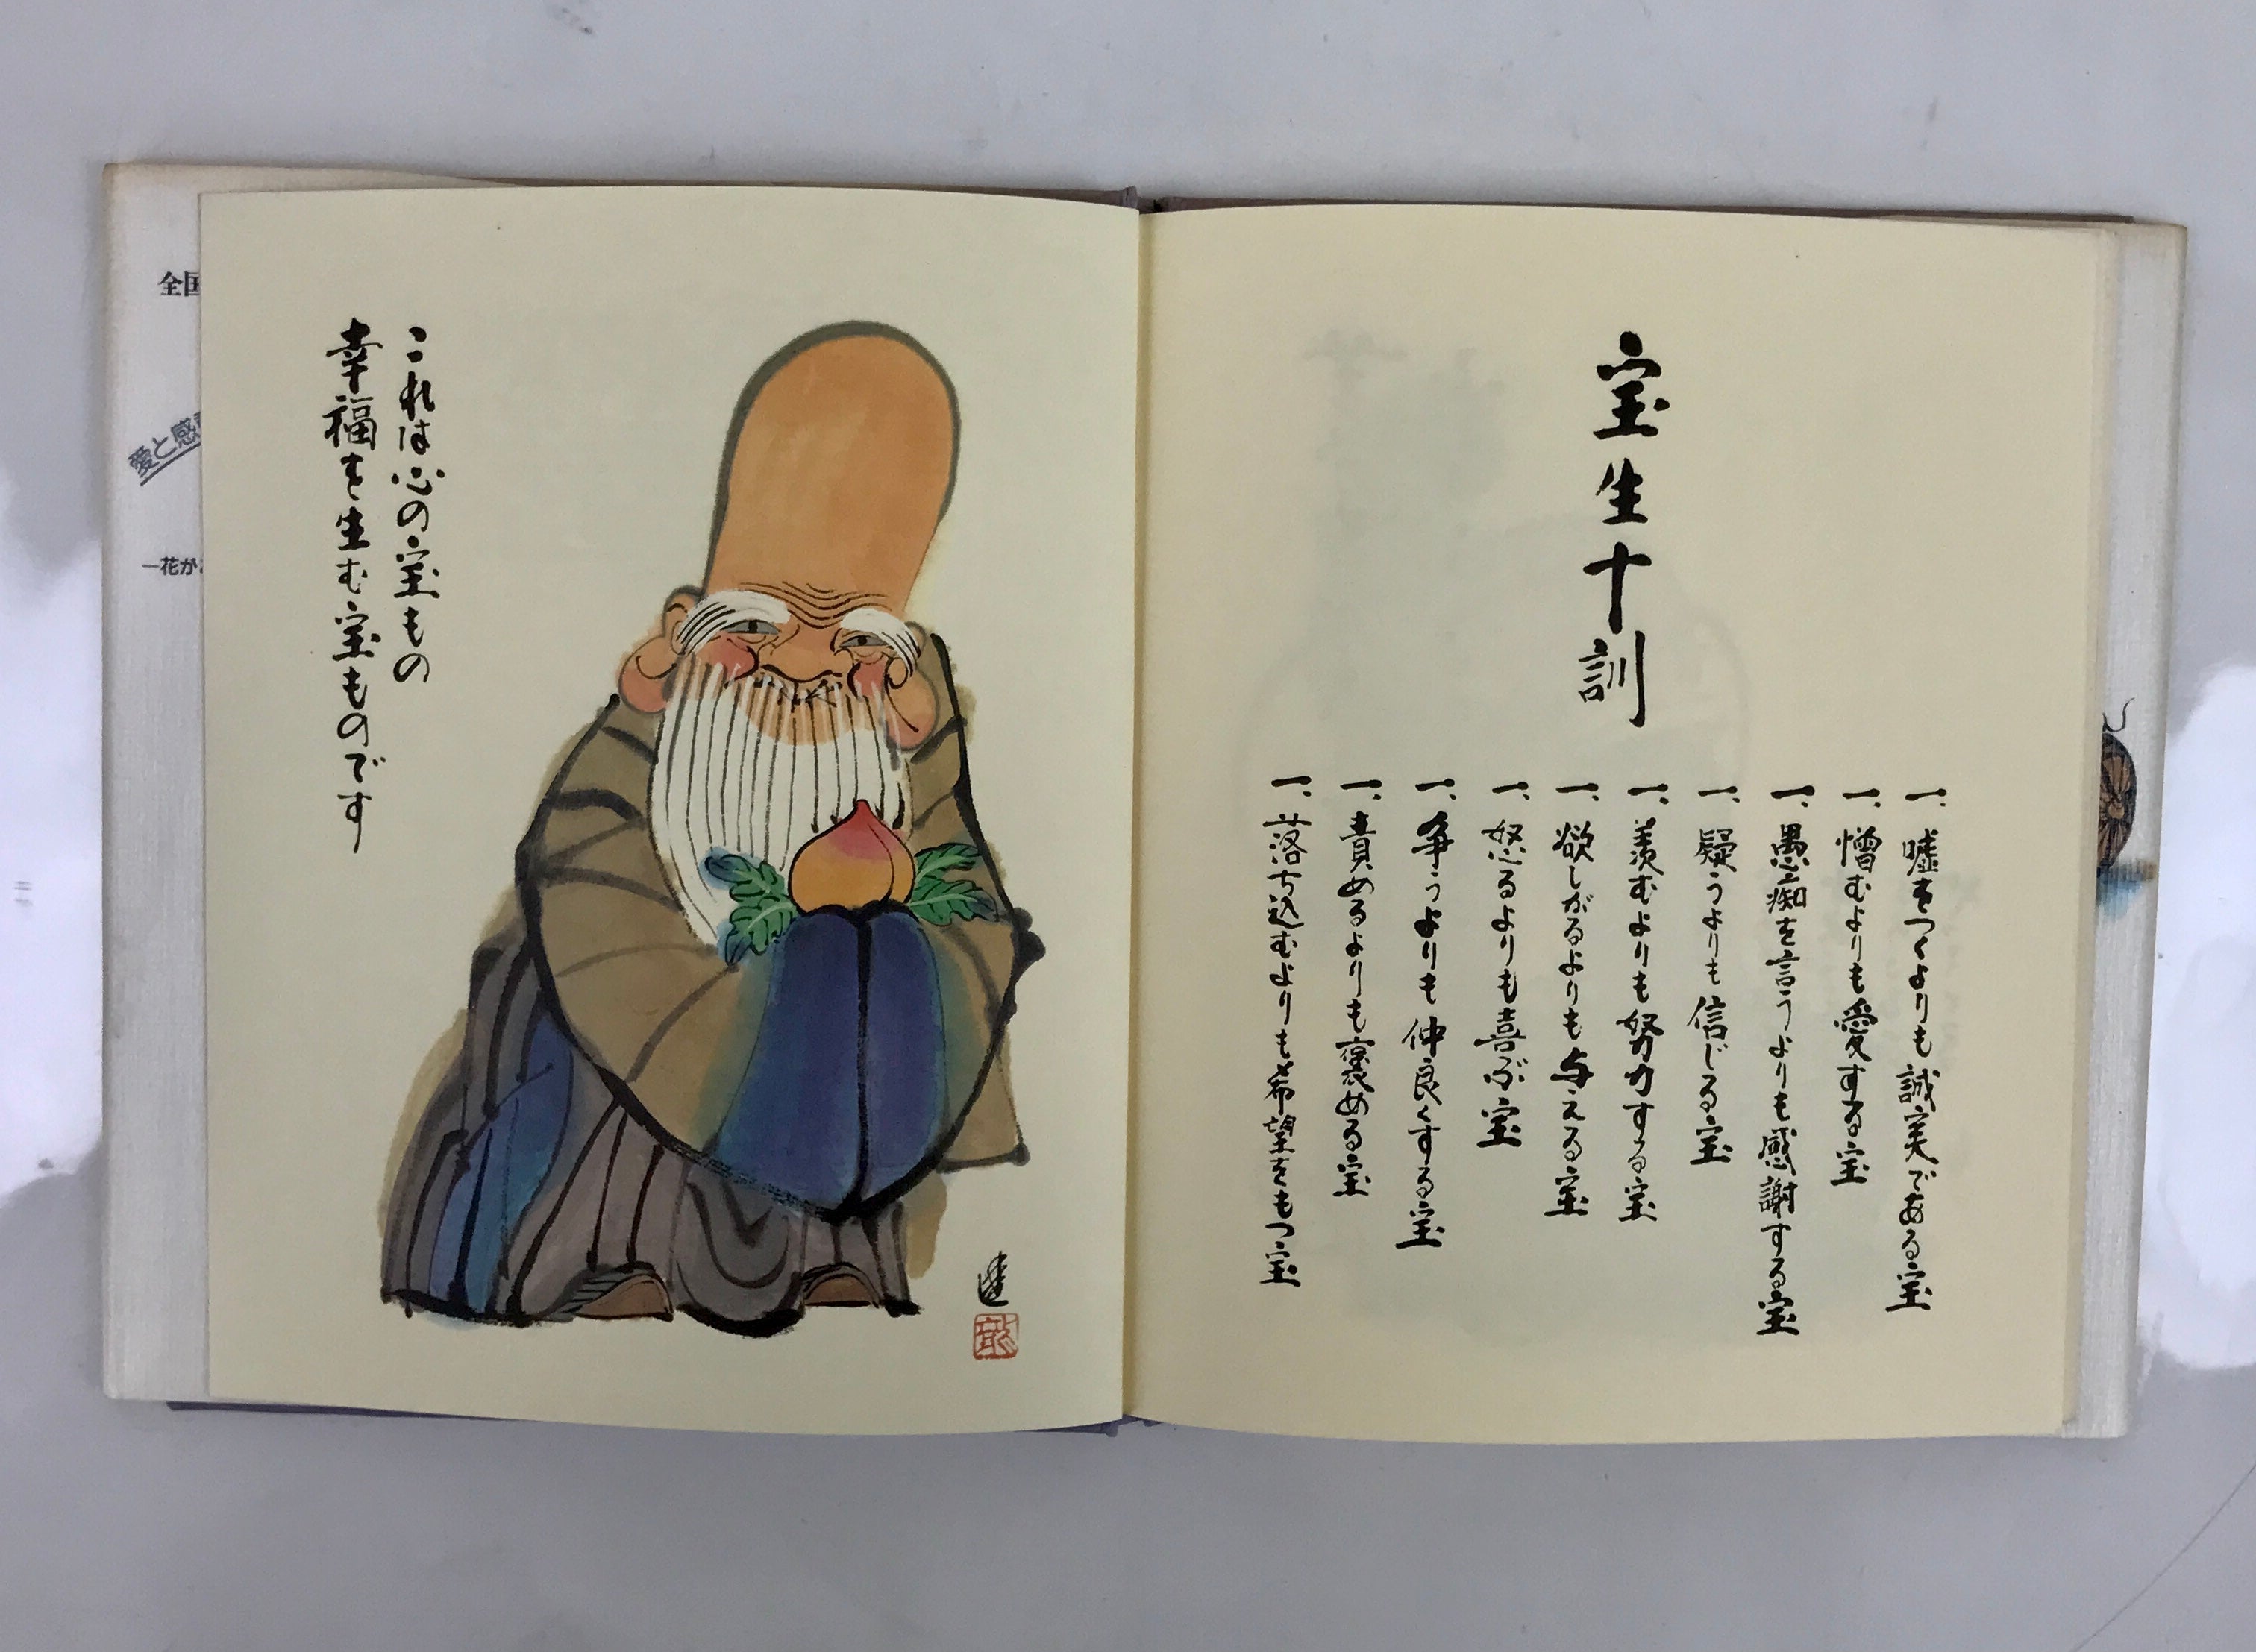 宝生十訓
一、嘘をつくよりも誠実である宝
一、憎むよりも愛する宝
一、愚痴を言うよりも感謝する宝
一、疑うよりも信じる宝
一、羨むよりも努力する宝
一、欲しがるよりも与える宝
一、怒るよりも喜ぶ宝
一、争うよりも仲良くする宝
一、責めるよりも褒める宝
一、落ち込むよりも希望をもつ宝
これは心の宝もの
幸福を生む宝ものです
全国
愛と感
一花が